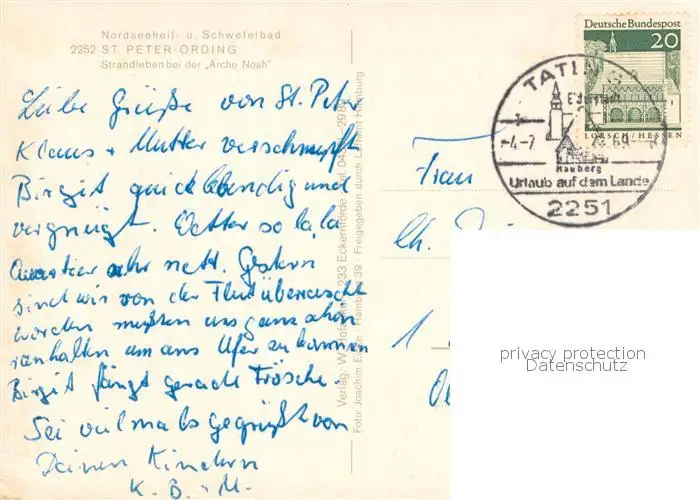 Nordseeheil- u. Schwefelbad
2252 ST. PETER-ORDING
Strandleben bei der „Arche Noah"
Liebe Grüße von St. Peter
Klaus + Mutter verschnupft
Birgit quicklebendig und
vergnügt. Wetter so la, la
Quartier sehr nett. Gestern
sind wir von der Flut überrascht
worden mußten uns ganz schön
ranhalten um ans Ufer zu kommen
Birgit fängt gerade Frösche.
Sei vielmals gegrüßt von
Deinen Kindern
K. B. + M.
Verlag: W. 233 Eckernförde
Foto: Joachim Hamburg 39 · Freigegeben durch Hamburg
Deutsche Bundespost
20
LORSCH/HESSEN
TATING
Eiderstedt
-4.-7.
Hauberg
Urlaub auf dem Lande
2251
Frau
Ch.
1
privacy protection
Datenschutz